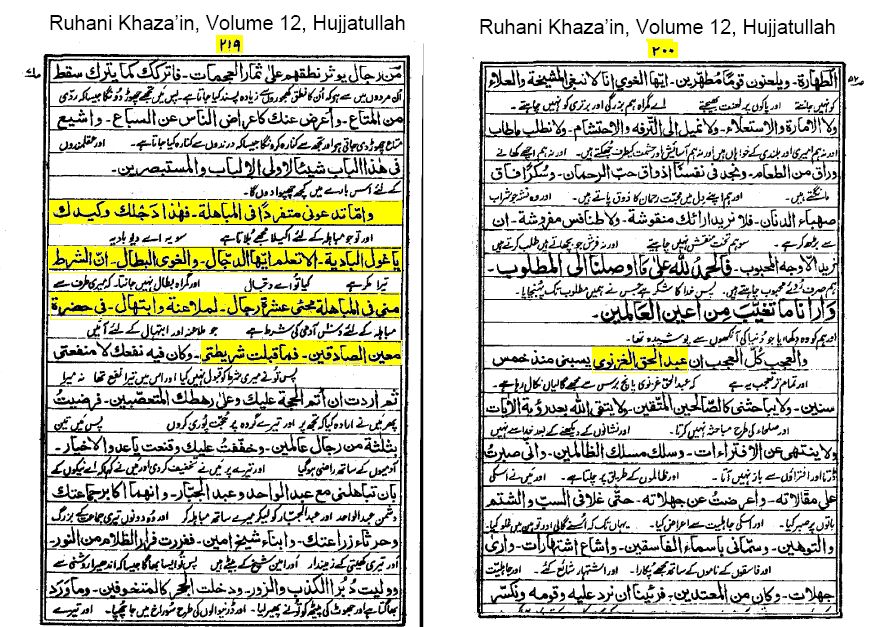 Ruhani Khaza’in, Volume 12, Hujjatullah
٢١٩
من رجال يوثر نطقهم على ثمار العجمات۔ فاتركك كما يترك سقط
ان مردوں میں سے ہو کہ اُن کا نطق کھجوروں سے زیادہ پسند کیا جاتا ہے۔ پس میں تجھے چھوڑ دونگا جیسا کہ ردّی
من المتاع۔ واعرض عنك كاعراض الناس عن السباع۔ واشيع
متاع چھوڑ دی جاتی ہے اور تجھ سے کنارہ کرونگا جیسا کہ درندوں سے کنارہ کیا جاتا ہے۔ اور عقلمندوں
فى هٰذا الباب شيئًا لاولى الالباب والمستبصرين۔
کے لئے اس بارے میں کچھ چھپوا دوں گا۔
واما تدعونى متفردًا فى المباهلة۔ فهٰذا دجلك وكيدك
اور تو جو مباہلہ کے لئے اکیلا مجھے بُلاتا ہے سو یہ اے دیو بادیہ
يا غول البادية۔ الا تعلم ايها الدجّال۔ والغوى البطال۔ ان الشرط
تیرا مکر ہے کیا تُو اے دجّال اور گمراہ بطال نہیں جانتا۔ کہ میری طرف سے
منى فى المباهلة مجئ عشرة رجال۔ لملاعنة وابتهال۔ فى حضرة
مباہلہ کے لئے دس آدمی کی شرط ہے جو ملاعنہ اور ابتہال کے لئے آئیں
معين الصادقين۔ فما قبلت شريطتى۔ وكان فيه نفعك لا منفعتى
پس تُو نے میری شرط کو قبول نہیں کیا اور اس میں تیرا نفع تھا نہ میرا
ثم اردت ان أتم الحجة عليك وعلى رهطك المتعصبين۔ فرضيتُ
پھر میں نے ارادہ کیا کہ تجھ پر اور تیرے گروہ پر حجّت پوری کروں پس میں تین
بثلثة من رجال عالمين۔ وخففتُ عليك وقنعت ياعدو الاخيار۔
آدمیوں کے ساتھ راضی ہو گیا اور تیرے پر میں نے تخفیف کر دی اور میں نے کہا کہ اے نیکوں کے
بان تباهلنى مع عبد الواحد وعبد الجبّار۔ وانهما اكابر جماعتك
دشمن عبد الواحد اور عبد الجبّار کو لیکر میرے ساتھ مباہلہ کر اور وہ دونوں تیری جماعت کے بزرگ
وحرثاء زراعتك۔ وابناء شيخ امين۔ ففررت فرار الظلام من النور۔
اور تیری کھیتی کے زمیندار اور امین شیخ کے بیٹے ہیں پس تُو ایسا بھاگا جیسا کہ اندھیرا روشنی سے
ووليت دبر الكذب والزور۔ ودخلت الجحر كالمتخوفين۔ وماورد
بھاگتا ہے اور جھوٹ کی پیٹھ کو تُو نے پھیر لیا۔ اور ڈرنیوالوں کی طرح سُوراخ میں جا چھپا۔ اور تیرے
Ruhani Khaza’in, Volume 12, Hujjatullah
٢٠٠
الطهارة۔ ويلعنون قومًا مطهرين۔ ايها الغوى انا لا نبغى المشيخة والعلاء
کو نہیں جانتے اور پاکوں پر لعنت بھیجتے اے گمراہ ہم بزرگی اور برتری کو نہیں چاہتے۔
ولا الامارة والاستعلاء۔ ولا نميل الى الترفه والاحتشام۔ ولا نطلب ماطاب
اور نہ ہم امیری اور بلندی کے خواہاں ہیں اور نہ ہم آسائش اور حشمت کیطرف جھکتے ہیں۔ اور نہ ہم اچھے کھانے
وراق من الطعام۔ ونجد فى نفسنا اذواق حب الرحمان۔ وسكرًا فاق
مانگتے ہیں۔ اور ہم اپنے دل میں محبّت رحمان کا ذوق پاتے ہیں۔ اور وہ نشہ جو شراب
صهباء الدنان۔ فلا نريد ارائك منقوشة۔ ولا طنافس مفروشة۔ ان
سے بڑھ کر ہے۔ سو ہم تخت منقش نہیں چاہتے اور نہ فرش جو بچھائے ہیں طلب کرتے ہیں
نريد الا وجه المحبوب۔ فالحمد لله على ما اوصلنا الى المطلوب۔
ہم صرف رُوئے محبوب چاہتے ہیں۔ پس خدا کا شکر ہے جس نے ہمیں مطلوب تک پہنچایا۔
وارانا ما تغيّب من اعين العالمين۔
اور ہم کو وہ دکھایا جو دُنیا کی آنکھوں سے پوشیدہ تھا۔
والعجب كل العجب ان عبد الحق الغزنوى يسبنى منذ خمس
اور تمام تر تعجب یہ ہے کہ عبد الحق غزنوی پانچ برس سے مجھے گالیاں نکال رہا ہے۔
سنين۔ ولا يباحثنى كالصالحين المتقين۔ ولا يتقى الله بعد رؤية الأيات
اور صلحاء کی طرح مباحثہ نہیں کرتا۔ اور نشانوں کے دیکھنے کے بعد خدا سے نہیں
ولا ينتهى عن الافتراءات۔ وسلك مسلك الظالمين۔ وانى صبرتُ
ڈرتا اور افتراؤں سے باز نہیں آتا۔ اور ظالموں کے طریق پر چلتا ہے۔ اور میں نے اسکی
على مقالاته۔ واعرضتُ عن جهلاته۔ حتى غلا فى السبّ والشتم
باتوں پر صبر کیا۔ اور اسکی جاہلیت سے اعراض کیا۔ یہاں تک کہ اُسنے گالی اور توہین میں غلو کیا۔
والتوهين۔ وسمّانى باسماء الفاسقين۔ واشاع اشتهارات۔ وارى
اور فاسقوں کے ناموں کے ساتھ مجھے پکارا۔ اور اشتہار شائع کئے۔ اور جاہلیت
جهلات۔ وكان من المعتدين۔ فرئينا ان نرد عليه وقومه ونكسر